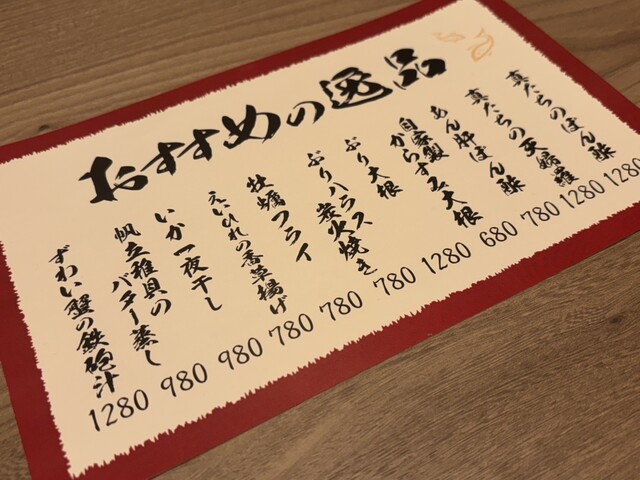 おすすめの逸品
真だちのぽん酢
1280
真だちの天婦羅
1280
あん肝ぽん酢
780
自家製
からすみ大根
680
ぶり大根
1280
ぶりハラス
炭火焼き
780
牡蠣フライ
780
えいひれの香草揚げ
780
いか一夜干し
980
帆立稚貝の
バター蒸し
980
ずわい蟹の鉄砲汁
1280